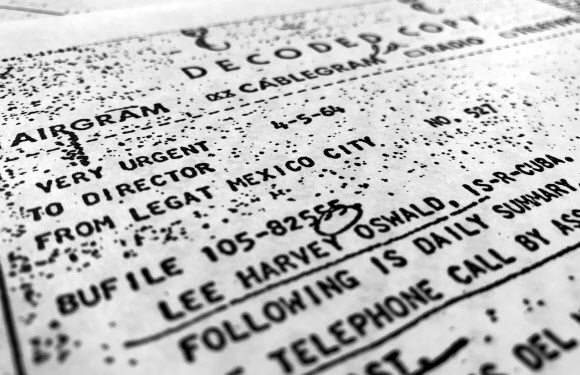 DECODED COPY
AIRGRAM XXX CABLEGRAM RADIO
VERY URGENT 4-5-64
TO DIRECTOR NO. 527
FROM LEGAT MEXICO CITY
BUFILE 105-82555
LEE HARVEY OSWALD, IS-R-CUBA.
FOLLOWING IS DAILY SUMMARY.
TELEPHONE CALL BY
DEL